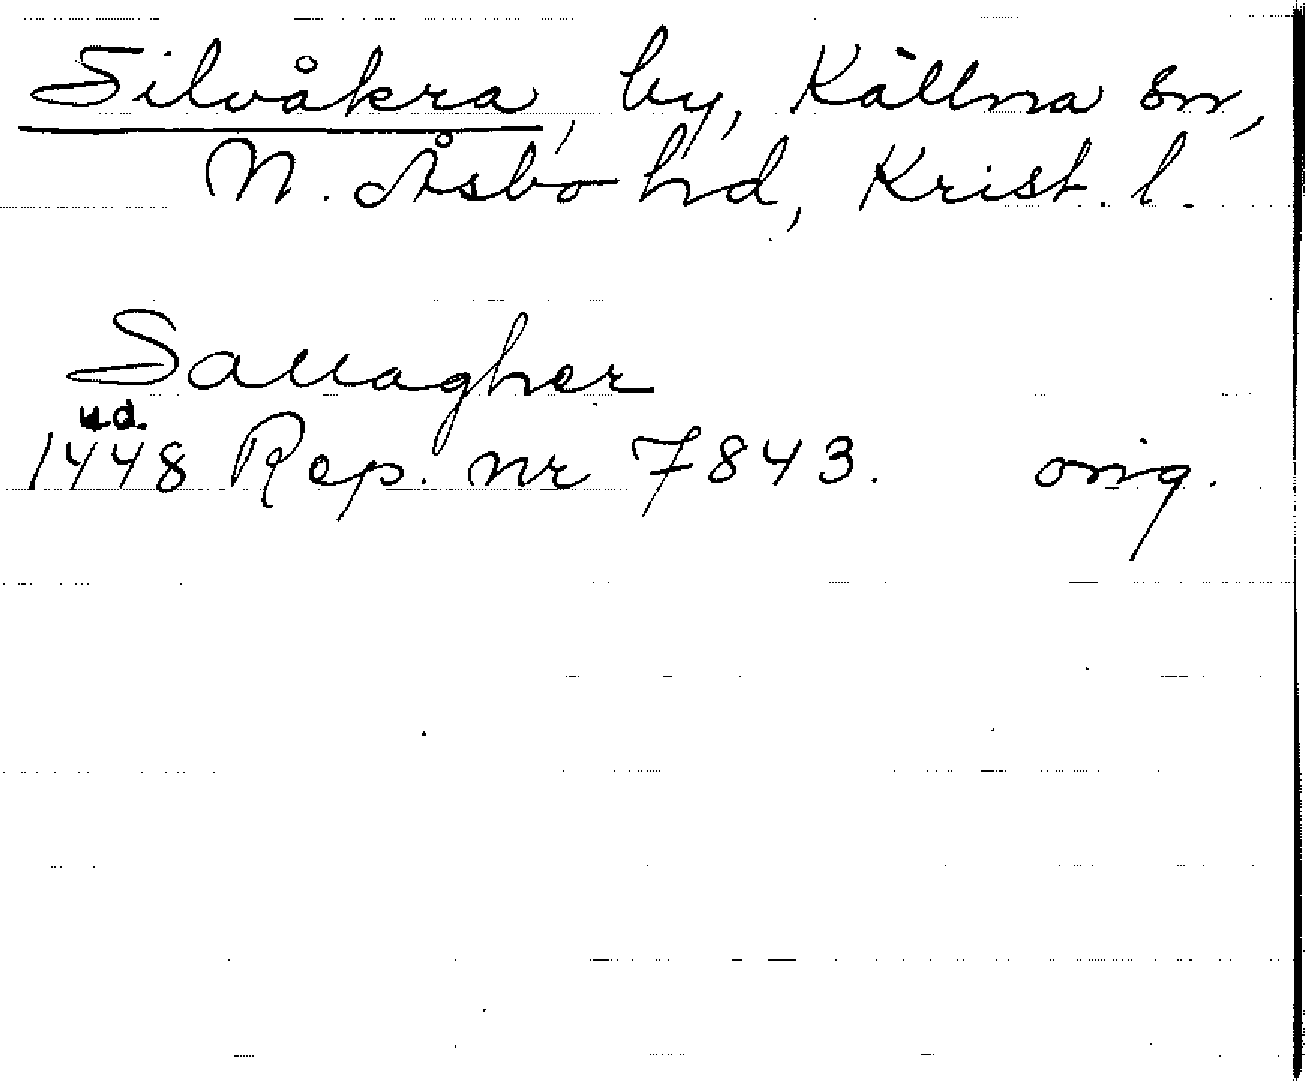 Silvåkra, by, Källna sn,
N. Åsbo hd, Krist. l.
Sallagher
u.d.
1448 Rep. nr 7843. orig.